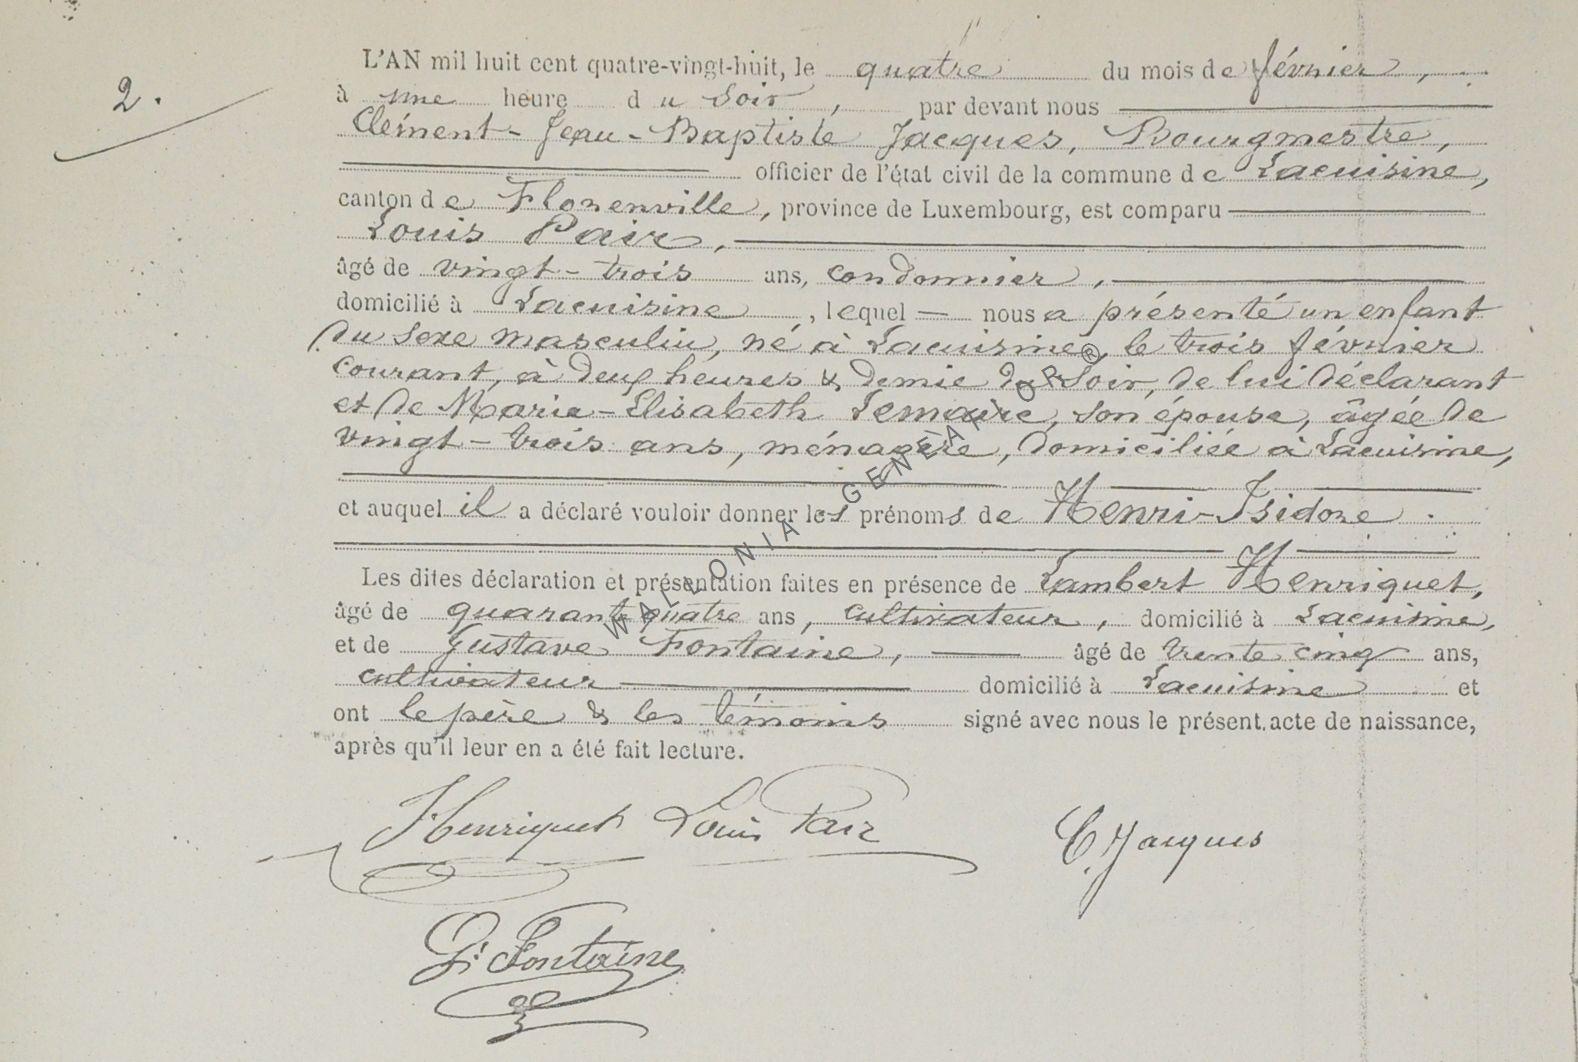 L'AN mil huit cent quatre-vingt-huit, le quatre du mois de février,
2.
à une heure du soir, par devant nous
Clément-Jean-Baptiste Jacques, Bourgmestre,
officier de l'état civil de la commune de Lacuisine,
canton de Florenville, province de Luxembourg, est comparu
Louis Pair,
âgé de vingt-trois ans, cordonnier,
domicilié à Lacuisine, lequel nous a présenté un enfant
du sexe masculin, né à Lacuisine, le trois février
courant, à deux heures & demie du soir, de lui déclarant
et de Marie-Elisabeth Lemaire, son épouse, âgée de
vingt-trois ans, ménagère, domiciliée à Lacuisine,
et auquel il a déclaré vouloir donner les prénoms de Henri-Isidore.
Les dites déclaration et présentation faites en présence de Lambert Henriquet,
âgé de quarante quatre ans, cultivateur, domicilié à Lacuisine,
et de Gustave Fontaine, âgé de trente cinq ans,
cultivateur domicilié à Lacuisine et
ont le père & les témoins signé avec nous le présent acte de naissance,
après qu'il leur en a été fait lecture.
Henriquet Louis Pair C. Jacques
G. Fontaine
WALLONIA - GENEALOR®